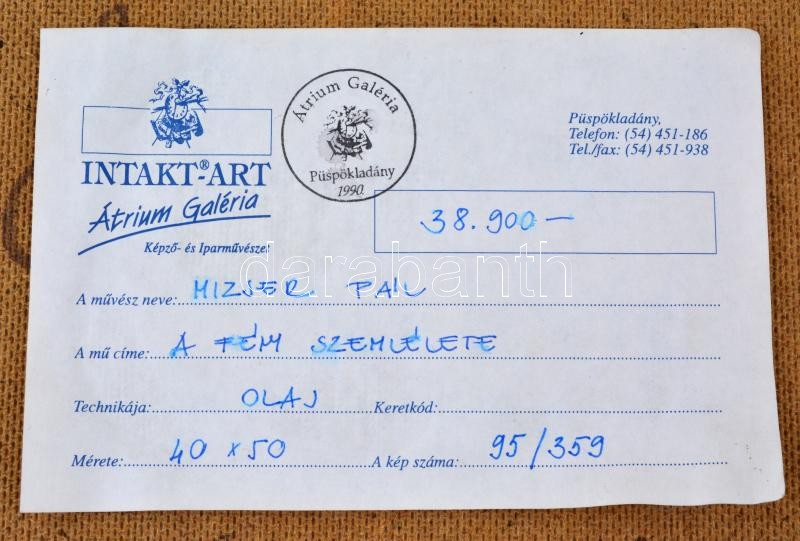 Átrium Galéria
Püspökladány
1990.
INTAKT®-ART
Átrium Galéria
Képző- és Iparművészet
Püspökladány,
Telefon: (54) 451-186
Tel./fax: (54) 451-938
38.900-
darabanth
A művész neve: MIZSER PÁL
A mű címe: A FÉNY SZEMLÉLETE
Technikája: OLAJ Keretkód:
Mérete: 40 x 50 A kép száma: 95/359